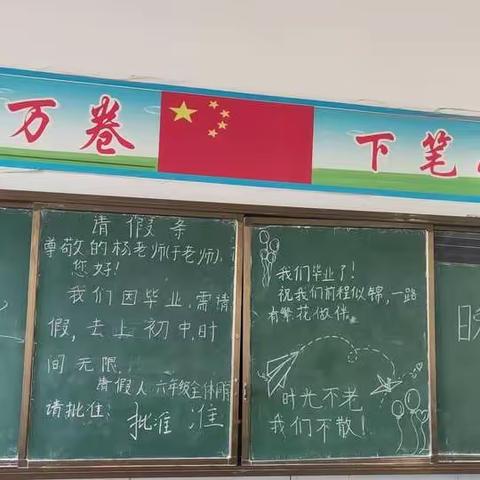 万卷
下笔
请假条
尊敬的杨老师(于老师),
您好!
我们因毕业,需请
假,去上初中,时
间无限.
请假人:六年级全体师
请批准:
批准 准
我们毕业了!
祝我们前程似锦,一路
有繁花做伴。
时光不老
我们不散!